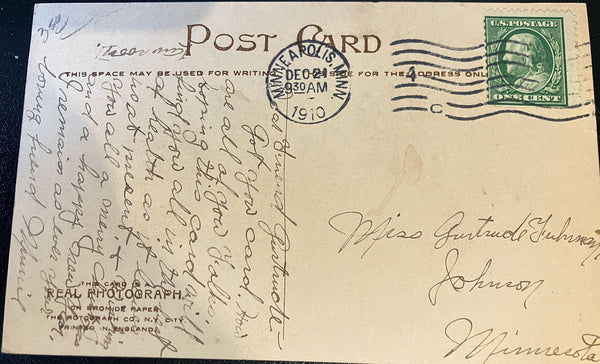 POST CARD
THIS SPACE MAY BE USED FOR WRITING
SIDE FOR THE ADDRESS ONLY
MINNEAPOLIS, MINN.
DEC 21
930 AM
1910
C
U.S. POSTAGE
ONE CENT
Friend Gertrude-
Got your card. How
are all of you folks
hoping this card will
find you all in the best
of health as it leaves
me at present.
you all a merry
and a happy
I remain as ever your
loving friend Minnie
Miss Gertrude Fuhrman
Johnson
Minnesota
THIS CARD IS A
REAL PHOTOGRAPH.
ON BROMIDE PAPER.
THE ROTOGRAPH CO., N.Y. CITY.
PRINTED IN ENGLAND.